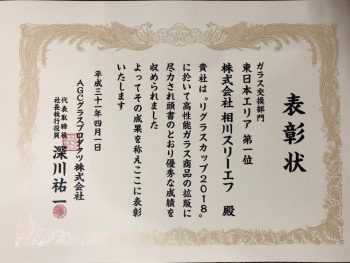 表彰状
ガラス交換部門
東日本エリア 第一位
株式会社 相川スリーエフ 殿
貴社は〝リグラスカップ2018〟
に於いて高性能ガラス商品の拡販に
尽力され頭書のとおり優秀な成績を
収められました
よってその成果を称えここに表彰
いたします
平成三十一年四月一日
AGCグラスプロダクツ株式会社
代表取締役
社長執行役員
深川祐一